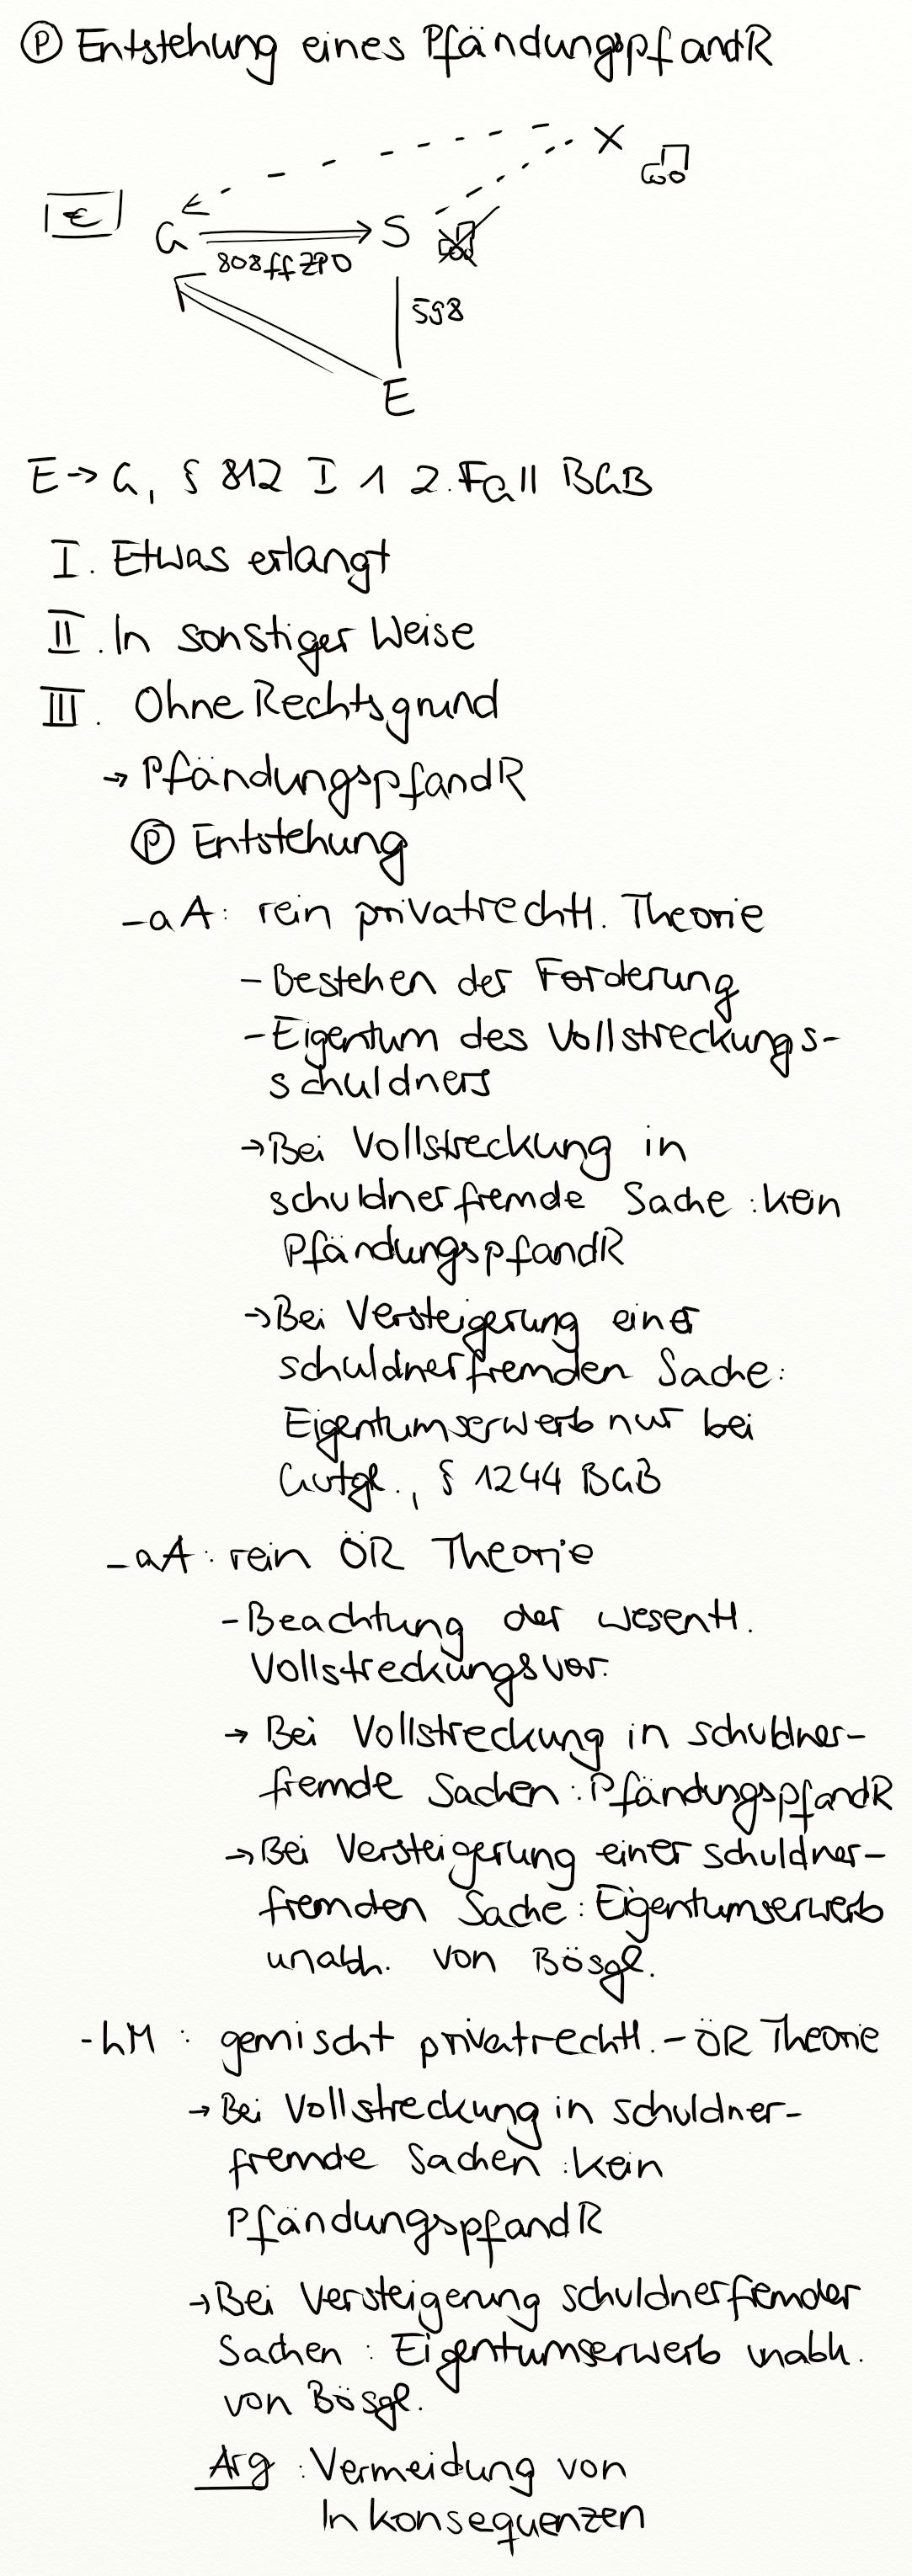 Ⓟ Entstehung eines PfändungspfandR
X
€
G
S
808ff ZPO
598
E
E → G, § 812 I 1 2. Fall BGB
I. Etwas erlangt
II. In sonstiger Weise
III. Ohne Rechtsgrund
→ PfändungspfandR
Ⓟ Entstehung
- aA: rein privatrechtl. Theorie
- Bestehen der Forderung
- Eigentum des Vollstreckungs-
schuldners
→ Bei Vollstreckung in
schuldnerfremde Sache: kein
PfändungspfandR
→ Bei Versteigerung einer
schuldnerfremden Sache:
Eigentumserwerb nur bei
Gutgl., § 1244 BGB
- aA: rein ÖR Theorie
- Beachtung der wesentl.
Vollstreckungsvor.
→ Bei Vollstreckung in schuldner-
fremde Sachen: PfändungspfandR
→ Bei Versteigerung einer schuldner-
fremden Sache: Eigentumserwerb
unabh. von Bösgl.
- hM: gemischt privatrechtl. - ÖR Theorie
→ Bei Vollstreckung in schuldner-
fremde Sachen: kein
PfändungspfandR
→ Bei Versteigerung schuldnerfremder
Sachen: Eigentumserwerb unabh.
von Bösgl.
Arg: Vermeidung von
Inkonsequenzen